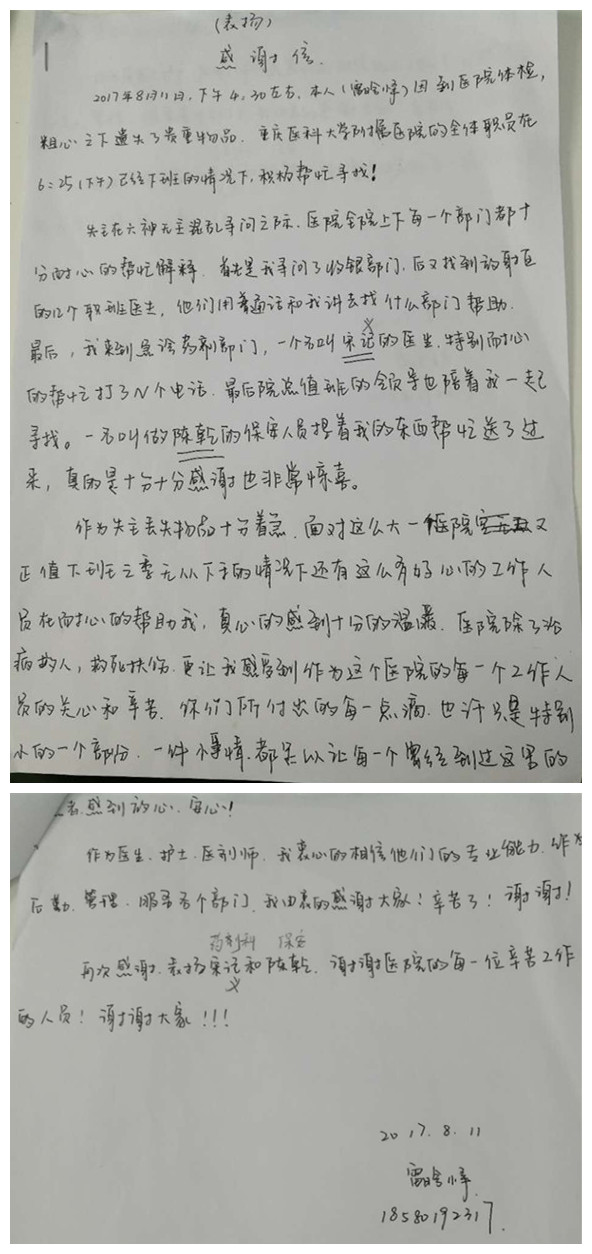 (表扬)
感谢信.
2017年8月11日,下午4.30左右,本人()因到医院体检,
粗心之下遗失了贵重物品.重庆医科大学附属医院的全体职员在
6:25(下午)已经下班的情况下,积极帮忙寻找!
失主在六神无主混乱寻问之际.医院全院上下每一个部门都十
分耐心的帮忙解释.首先是我寻问了收银部门.后又找到放射区
的12个职班医生,他们用普通话和我讲去找什么部门帮助.
最后,我来到急诊药剂部门,一个名叫宋的医生.特别耐心
的帮忙打了N个电话.最后院总值班的领导也陪着我一起
寻找。一名叫做陈乾的保安人员提着我的东西帮忙送了过
来,真的是十分十分感谢也非常惊喜。
作为失主丢失物品十分着急.面对这么大一个医院又
正值下班之季无从下手的情况下还有这么有好心的工作人
员在耐心的帮助我,真心的感到十分的温暖.医院除了治
病救人,救死扶伤.更让我感受到作为这个医院的每一个工作人
员的关心和辛苦.你们所付出的每一点滴.也许只是特别
小的一个部分.一件小事情.都足以让每一个曾经到过这里的
者.感到放心.安心!
作为医生.护士.医剂师.我衷心的相信他们的专业能力.作为
后勤.管理.服务各个部门.我由衷的感谢大家!辛苦了!谢谢!
药剂科 保安
再次感谢.表扬宋和陈乾.谢谢医院的每一位辛苦工作
的人员!谢谢大家!!!
2017.8.11
18580192317.